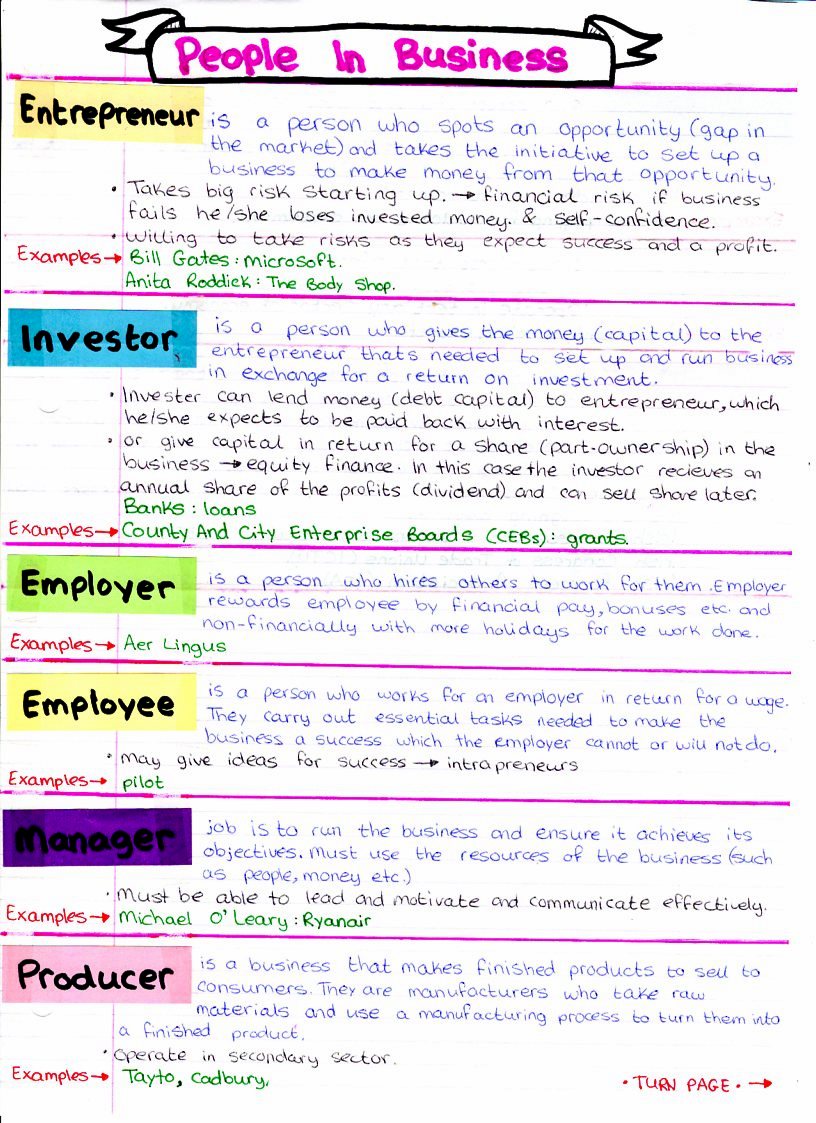 People In Business
Entrepreneur is a person who spots an opportunity (gap in
the market) and takes the initiative to set up a
business to make money from that opportunity.
• Takes big risk starting up. → financial risk if business
fails he/she loses invested money. & self-confidence.
• Willing to take risks as they expect success and a profit.
Examples → Bill Gates : Microsoft.
Anita Roddick : The Body Shop.
Investor is a person who gives the money (capital) to the
entrepreneur thats needed to set up and run business
in exchange for a return on investment.
• Invester can lend money (debt capital) to entrepreneur, which
he/she expects to be paid back with interest.
• or give capital in return for a share (part-ownership) in the
business → equity finance. In this case the investor recieves an
annual share of the profits (dividend) and can sell share later.
Banks : loans
Examples → County And City Enterprise Boards (CEBs) : grants.
Employer is a person who hires others to work for them. Employer
rewards employee by financial pay, bonuses etc. and
non-financially with more holidays for the work done.
Examples → Aer Lingus
Employee is a person who works for an employer in return for a wage.
They carry out essential tasks needed to make the
business a success which the employer cannot or will not do.
• may give ideas for success → intrapreneurs
Examples → pilot
Manager job is to run the business and ensure it achieves its
objectives. Must use the resources of the business (such
as people, money etc.)
• Must be able to lead and motivate and communicate effectively.
Examples → Michael O'Leary : Ryanair
Producer is a business that makes finished products to sell to
consumers. They are manufacturers who take raw
materials and use a manufacturing process to turn them into
a finished product.
• Operate in secondary sector.
Examples → Tayto, Cadbury.
• TURN PAGE • →